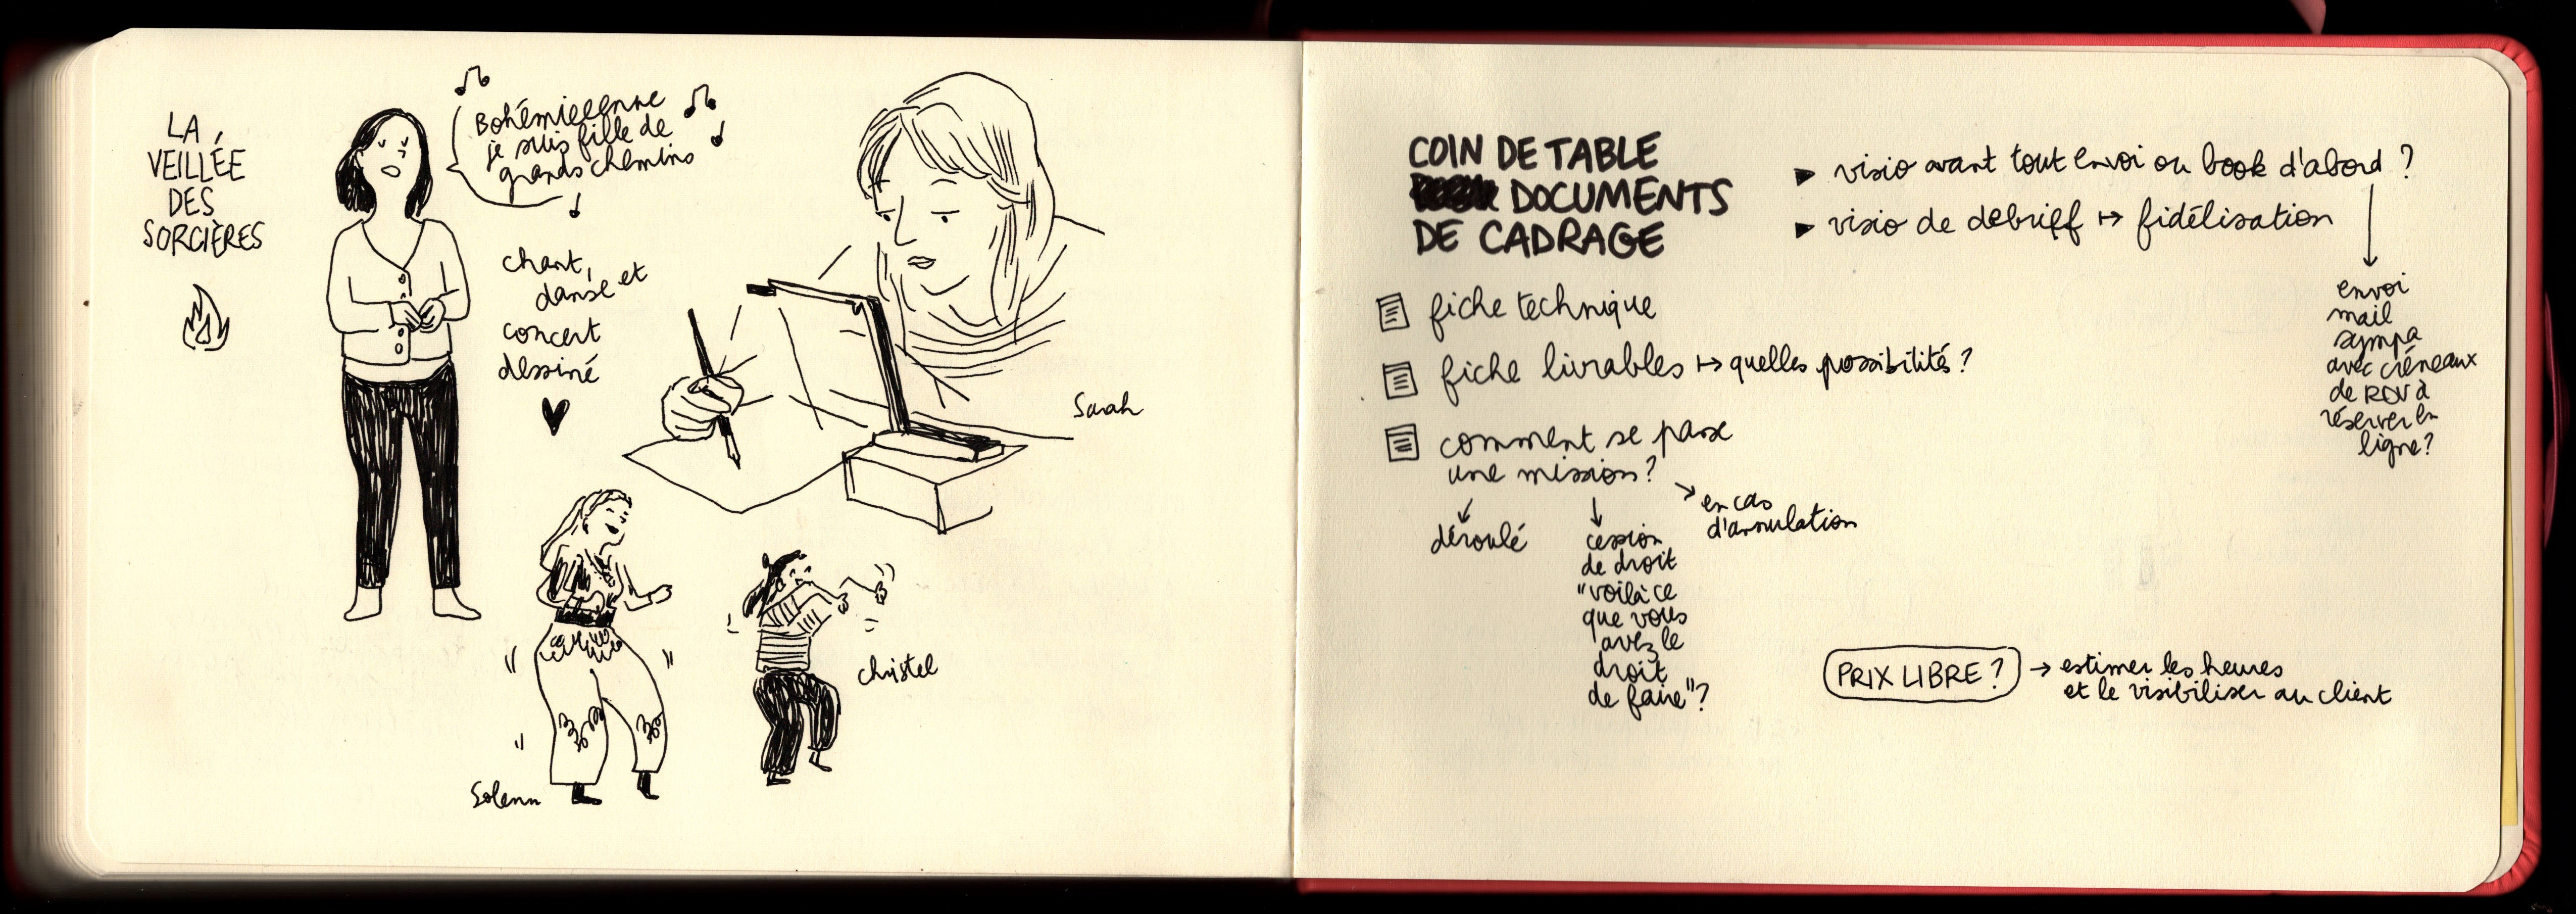 LA
VEILLÉE
DES
SORCIÈRES
Bohémieeenne
je suis fille de
grands chemins
chant,
danse et
concert
dessiné
Sarah
Solenn
christel
COIN DE TABLE
DOCUMENTS
DE CADRAGE
▸ visio avant tout envoi ou book d'abord ?
▸ visio de debrieff ↦ fidélisation
envoi
mail
sympa
avec créneaux
de RDV à
réserver en
ligne ?
fiche technique
fiche livrables ↦ quelles possibilités ?
comment se passe
une mission ?
déroulé
cession
de droit
"voilà ce
que vous
avez le
droit
de faire" ?
en cas
d'annulation
PRIX LIBRE ? → estimer les heures
et le visibiliser au client